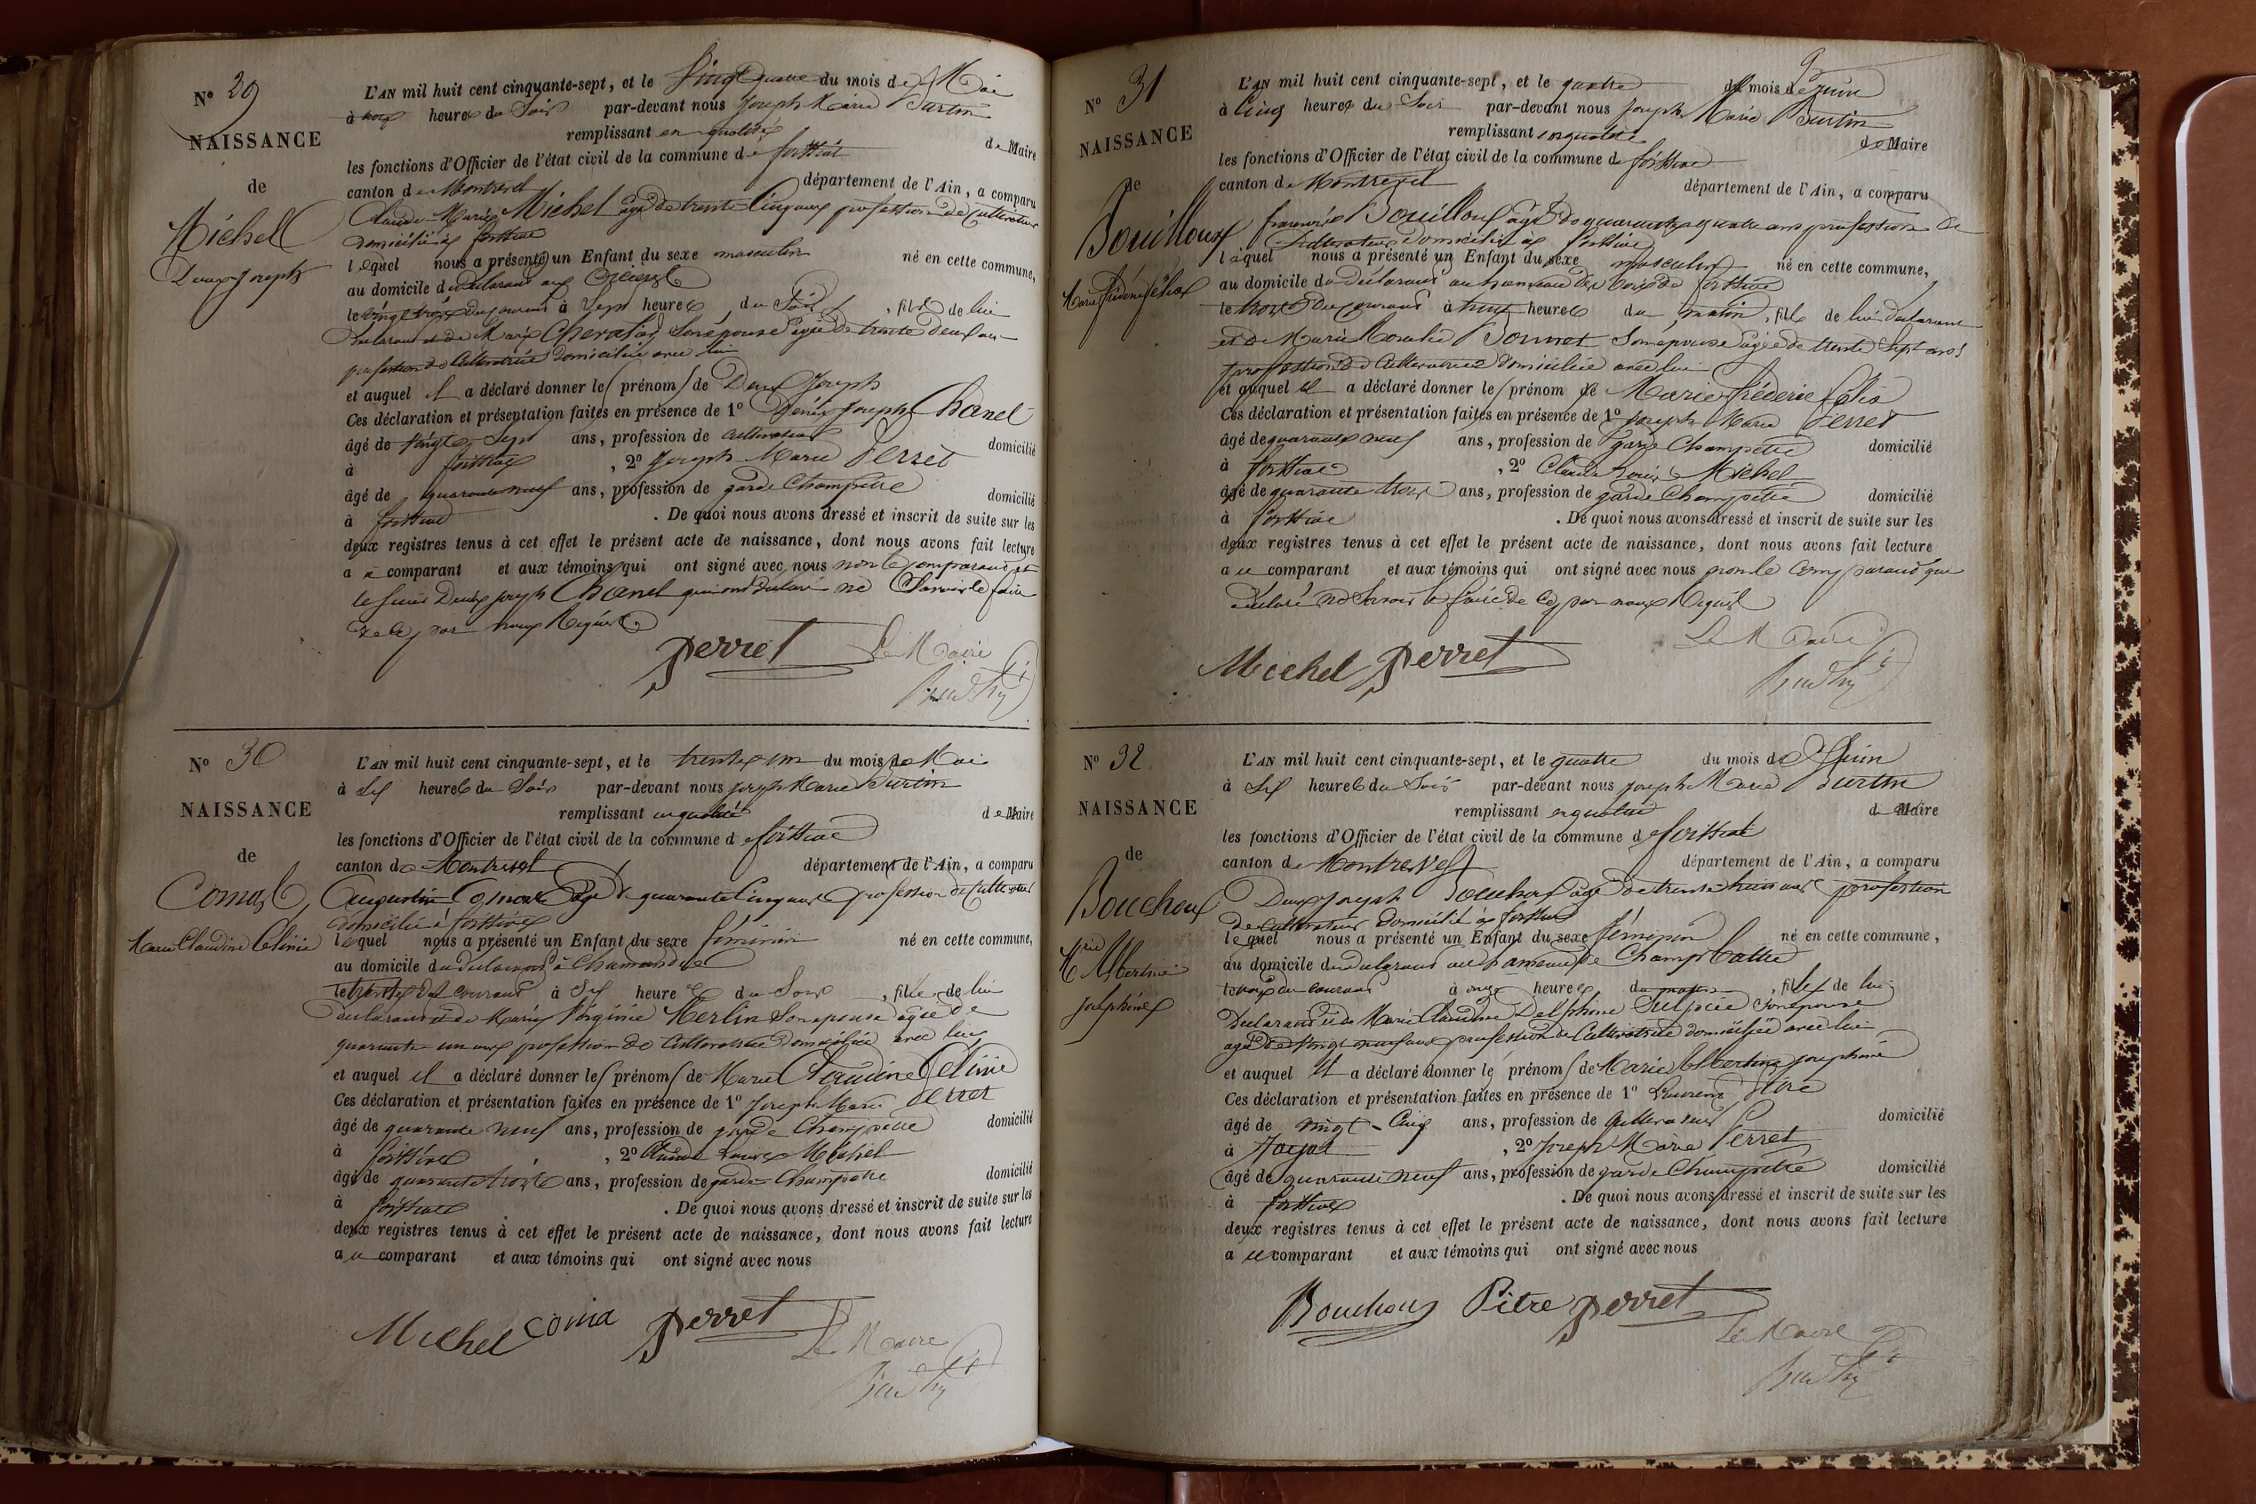 N° 29
NAISSANCE
de
Michel
Denis Joseph
L'AN mil huit cent cinquante-sept, et le vingt quatre du mois de Mai
à heures du Soir par-devant nous Joseph Marie Burtin
remplissant en qualité de Maire
les fonctions d'Officier de l'état civil de la commune de foissiat
canton de Montrevel département de l'Ain, a comparu
Claude Marie Michel âgé de trente Cinq ans profession de Cultivateur
domicilié à foissiat
lequel nous a présenté un Enfant du sexe masculin né en cette commune,
au domicile du déclarant
le vingt trois du courant à sept heures du Soir, fils de lui
déclarant et de Marie Son épouse âgée de trente deux ans
profession de Cultivatrice domiciliée avec lui
et auquel il a déclaré donner les prénoms de Denis Joseph
Ces déclaration et présentation faites en présence de 1° Denis Joseph Chanel
âgé de vingt Sept ans, profession de cultivateur domicilié
à foissiat, 2° Joseph Marie Perret
âgé de quarante neuf ans, profession de garde Champêtre domicilié
à foissiat. De quoi nous avons dressé et inscrit de suite sur les
deux registres tenus à cet effet le présent acte de naissance, dont nous avons fait lecture
au comparant et aux témoins qui ont signé avec nous non le Comparant et
Denis Joseph Chanel qui ont déclaré ne Savoir le faire
de ce par nous Requis
Perret Le Maire
Burtin
N° 30
NAISSANCE
de
Comas
Marie Claudine Célinie
L'AN mil huit cent cinquante-sept, et le trente un du mois de Mai
à Six heures du Soir par-devant nous Joseph Marie Burtin
remplissant en qualité de Maire
les fonctions d'Officier de l'état civil de la commune de foissiat
canton de Montrevel département de l'Ain, a comparu
Augustin âgé de quarante Cinq ans profession de Cultivateur
domicilié à foissiat
lequel nous a présenté un Enfant du sexe féminin né en cette commune,
au domicile du déclarant à
le trente du courant à Six heures du Soir, fille de lui
déclarant et de Marie Virginie Merlin Son épouse âgée de
quarante un ans profession de Cultivatrice domiciliée avec lui
et auquel il a déclaré donner les prénoms de Marie Claudine Célinie
Ces déclaration et présentation faites en présence de 1° Joseph Marie Perret
âgé de quarante neuf ans, profession de garde Champêtre domicilié
à foissiat, 2° Claude Louis Michel
âgé de quarante trois ans, profession de garde Champêtre domicilié
à foissiat. De quoi nous avons dressé et inscrit de suite sur les
deux registres tenus à cet effet le présent acte de naissance, dont nous avons fait lecture
au comparant et aux témoins qui ont signé avec nous
Michel Coma Perret
Le Maire
Burtin
N° 31
NAISSANCE
de
Bouilloux
Marie Frédéric Félix
L'AN mil huit cent cinquante-sept, et le quatre du mois de Juin
à Cinq heures du Soir par-devant nous Joseph Marie Burtin
remplissant en qualité de Maire
les fonctions d'Officier de l'état civil de la commune de foissiat
canton de Montrevel département de l'Ain, a comparu
françois Bouilloux âgé de quarante quatre ans profession de
Cultivateur domicilié à foissiat
lequel nous a présenté un Enfant du sexe masculin né en cette commune,
au domicile du déclarant au hameau des bois de foissiat
le trois du courant à heures du matin, fils de lui déclarant
et de Marie Rosalie Bonnet Son épouse âgée de trente Sept ans
profession de Cultivatrice domiciliée avec lui
et auquel il a déclaré donner les prénom de Marie Frédéric félix
Ces déclaration et présentation faites en présence de 1° Joseph Marie Perret
âgé de quarante neuf ans, profession de garde Champêtre domicilié
à foissiat, 2° Claude Louis Michel
âgé de quarante trois ans, profession de garde Champêtre domicilié
à foissiat. De quoi nous avons dressé et inscrit de suite sur les
deux registres tenus à cet effet le présent acte de naissance, dont nous avons fait lecture
au comparant et aux témoins qui ont signé avec nous non le Comparant qui
déclaré ne Savoir le faire de ce par nous Requis
Le Maire
Michel Perret
Burtin
N° 32
NAISSANCE
de
Bouchoux
Mrie Albertine
Joséphine
L'AN mil huit cent cinquante-sept, et le quatre du mois de Juin
à Six heures du Soir par-devant nous Joseph Marie Burtin
remplissant en qualité de Maire
les fonctions d'Officier de l'état civil de la commune de foissiat
canton de Montrevel département de l'Ain, a comparu
Denis Joseph Bouchoux âgé de trente huit ans profession
de Cultivateur domicilié à foissiat
lequel nous a présenté un Enfant du sexe féminin né en cette commune,
au domicile du déclarant au hameau de
le trois du courant à onze heures du matin, fille de lui
déclarant et de Marie Claudine Delphine Sulpice Son épouse
âgée de vingt neuf ans profession de Cultivatrice domiciliée avec lui
et auquel il a déclaré donner les prénoms de Marie Albertine joséphine
Ces déclaration et présentation faites en présence de 1° Laurent Pitre
âgé de vingt-Cinq ans, profession de Cultivateur domicilié
à, 2° Joseph Marie Perret
âgé de quarante neuf ans, profession de garde Champêtre domicilié
à foissiat. De quoi nous avons dressé et inscrit de suite sur les
deux registres tenus à cet effet le présent acte de naissance, dont nous avons fait lecture
au comparant et aux témoins qui ont signé avec nous
Bouchoux Pitre Perret
Le Maire
Burtin